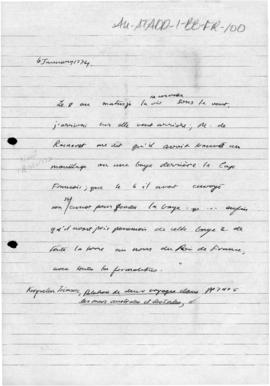 Au-ATADD-1-BE-FR-100
6 January 1774.
nouveau
Le 8 au matin je la vis sous le vent,
j'arrivai sur elle vent arrière, M. de
Rosnevet me dit qu'il avoit trouvé un
mouillage ou une baye derrière le Cap
Francois; que le 6 il avoit envoyé
son canot pour sonder la baye. ... enfin
qu'il avoit pris possession de cette baye & de
toute la terre au nom du Roi de France,
avec toutes les formalités.
Kerguelen Trémarec, Relation de deux voyages dans
les mers australes et des Indes,